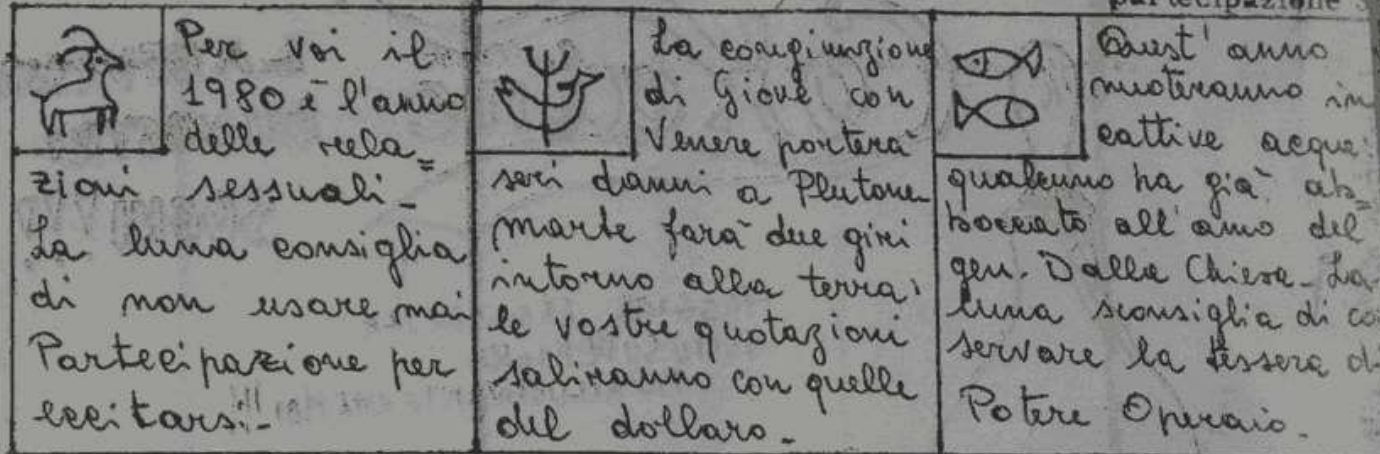 partecipazione
Per voi il
1980 è l'anno
delle rela=
zioni sessuali-
La luna consiglia
di non usare mai
Partecipazione per
eccitarsi!-
La congiunzione
di Giove con
Venere porterà
seri danni a Plutone
marte farà due giri
intorno alla terra:
le vostre quotazioni
saliranno con quelle
del dollaro-
Quest'anno
nuoteranno in
cattive acque:
qualcuno ha già ab=
boccato all'amo del
gen. Dalla Chiesa- La
luna sconsiglia di co
servare la tessera d
Potere Operaio-